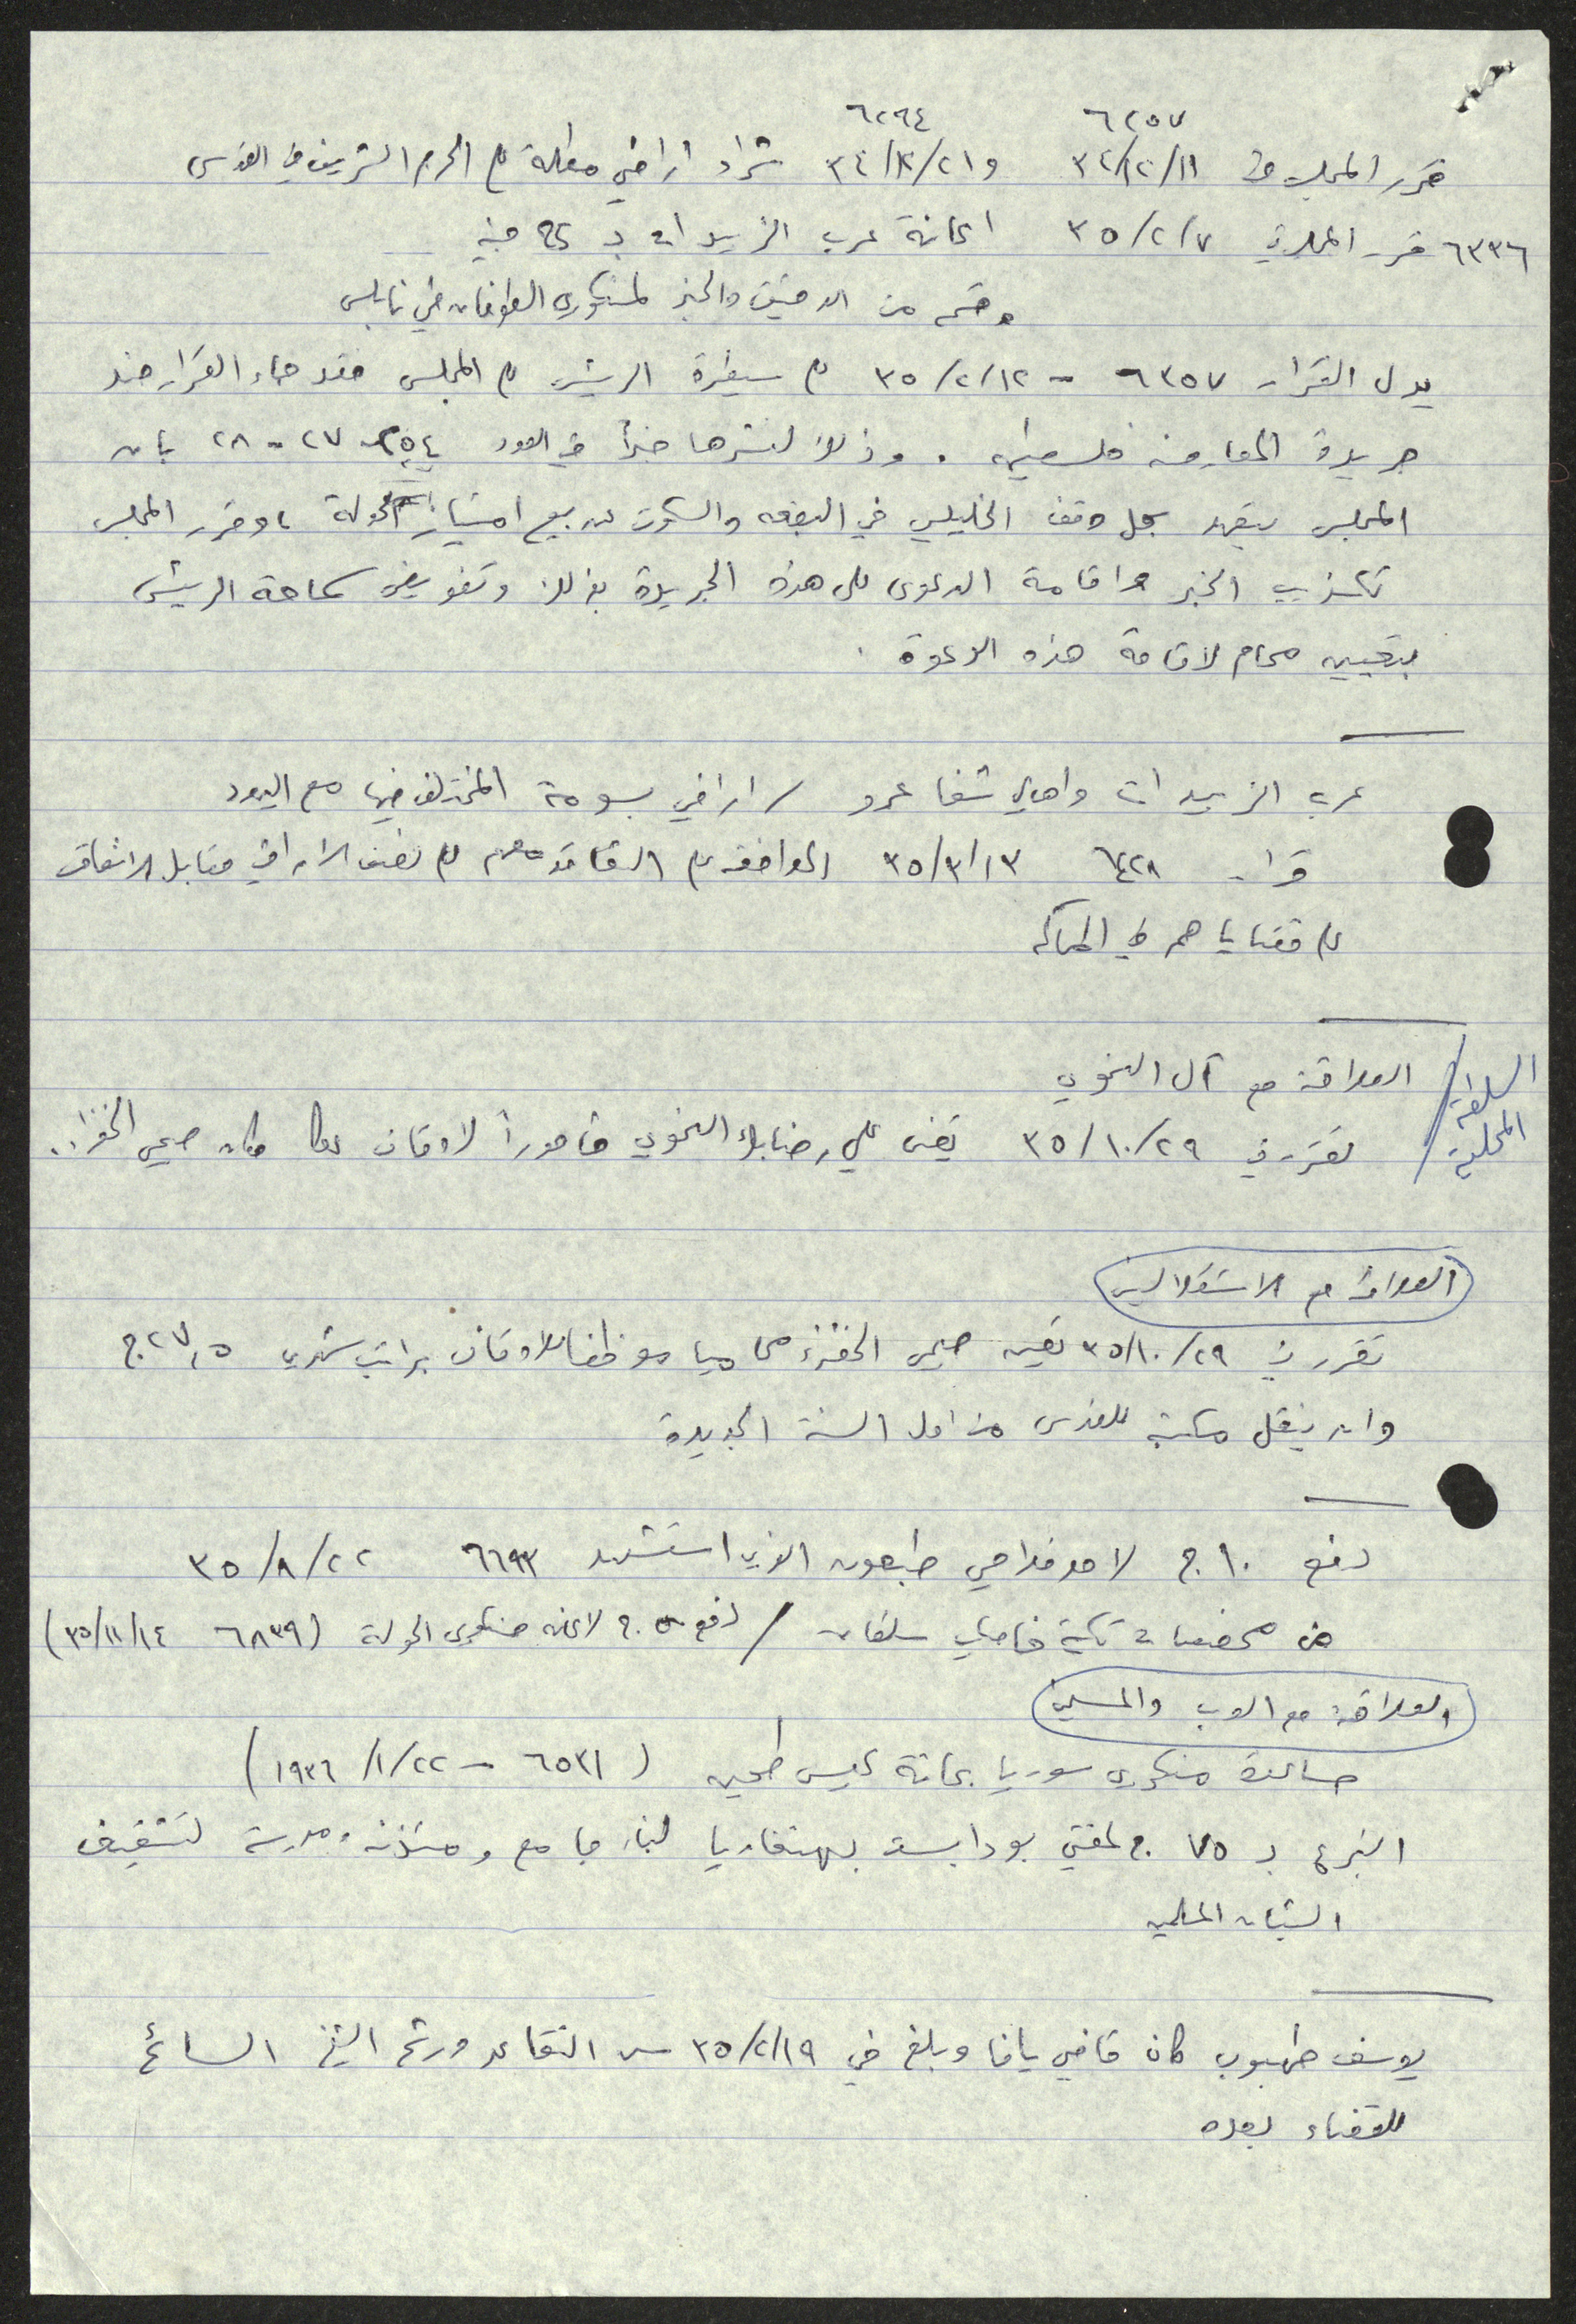 ٦٢٥٧ ٦٢٩٤
قرر المجلس في ٣٤/١٢/١١ و ٣٤/١٢/٢١ شراء اراضي مطلة على الحرم الشريف في القدس
٦٣٣٦ قرر المجلس في ٣٥/٢/٧ اعانة عرب الزبيدات بـ ٢٥ جنيه
وقسم من الدقيق والخبز لمنكوبي الطوفان في نابلس
يدل القرار ٦٣٥٧ - ٣٥/٢/١٢ على سيطرة الرئيس على المجلس فقد جاء القرار ضد
جريدة المعارضة فلسطين . وذلك لنشرها خبراً في العدد ٢٥٤ - ٢٧ - ٢٨ بان
المجلس يتعهد بحل وقف الخليلي في البقعه والسكوت عن بيع امتياز الحولة ، وقرر المجلس
تكذيب الخبر واقامة الدعوى على هذه الجريدة بذلك وتفويض سماحة الرئيس
بتعيين محام لاقامة هذه الدعوة .
عرب الزبيدات واهالي شفا عمرو / اراضي بسومة المختلف فيها مع اليهود
قرار ٦٤٢٨ ٣٥/٣/١٣ الموافقه على التعاقد معهم على نصف الاراضي مقابل الانفاق
على قضاياهم في المحاكم
السلطة المحلية / العلاقة مع آل النحوي
تقرر في ٣٥/١٠/٢٩ تعيين علي رضا بك النحوي مأموراً لاوقاف عكا مكان صبحي الخضرا..
العلاقة مع الاستقلاليين
تقرر في ٣٥/١٠/٢٩ تعيين صبحي الخضراء محاميا موظفا للاوقاف براتب شهري ٢٧,٥ ج
وان ينقل مكتبه للقدس من اول السنة الجديدة
دفع ١٠ ج لاحد فلاحي طبعون الذي استشهد ٦٦٩٣ ٣٥/٨/٢٢
من مخصصات تكية خاصكي سلطان / دفع ج لاعانه منكوبي الحولة (٦٨٣٩ ٣٥/١١/١٤)
العلاقة مع العرب والمسلمين
مساعدة منكوبي سوريا بمائة كيس طحين (٦٥٣١ - ١٩٣٦/١/٢٢)
التبرع بـ ٧٥ ج لمفتي بودابست بهنغاريا لبناء جامع ومئذنة ومدرسة لتثقيف
الشبان المسلمين
يوسف طهبوب كان قاضي يافا وبلغ في ٣٥/٢/١٩ سن التقاعد ورشح الشيخ السائح
للقضاء بعده